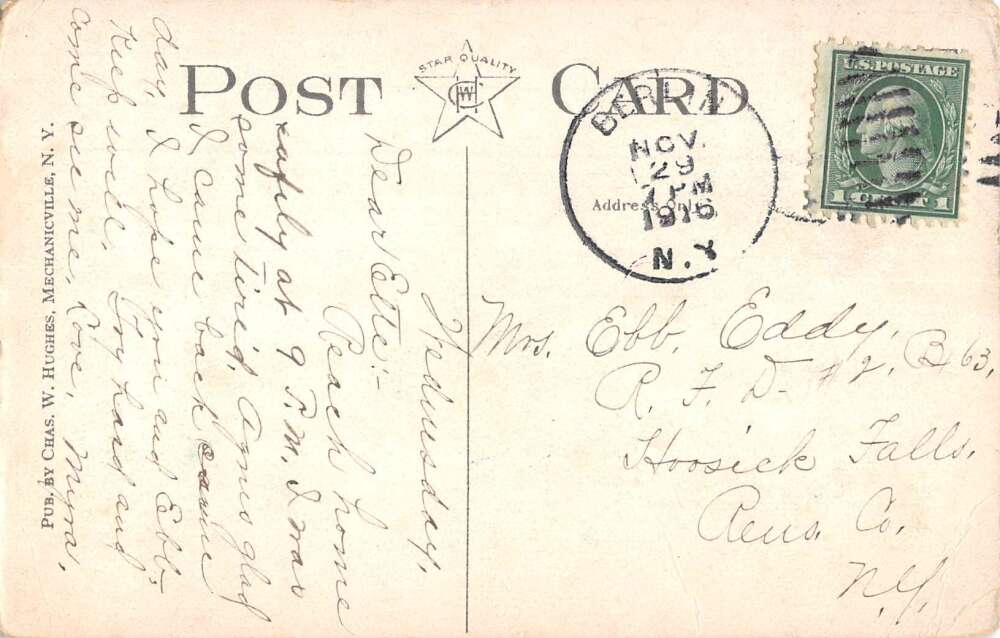 POST CARD
STAR QUALITY
CWH
Address Only
BERLIN
NOV.
29
7 PM
1916
N.Y.
U.S. POSTAGE
1 1
Wednesday,
Dear Ette:-
Reach home
safely at 9 P.M. I was
some tired, Agnes glad
I came back same
day, I hope you and Ebb
keep well. Try hard and
come see me, Love, Myra.
Mrs. Ebb. Eddy,
R. F. D. #2, B 63,
Hoosick Falls,
Rens. Co.
N.Y.
PUB. BY CHAS. W. HUGHES, MECHANICVILLE, N. Y.